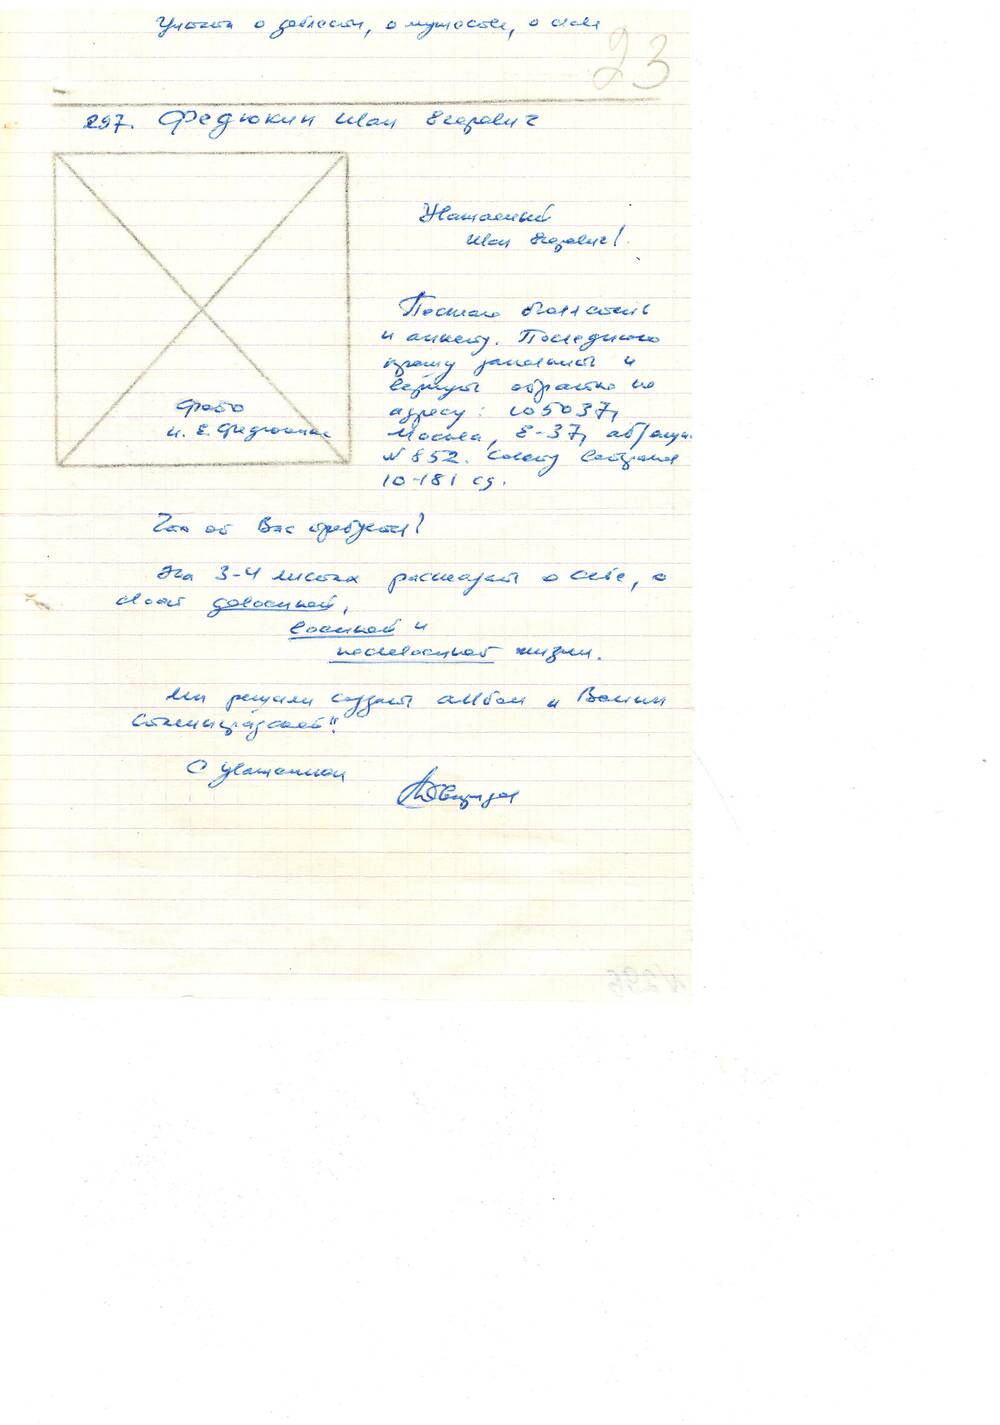 о доблести, о мужестве, о
23
297. Федюкин Иван Егорович
Уважаемый
Иван Егорович!
Посылаю
и анкету. Последнюю
прошу заполнить и
вернуть обратно по
адресу: 105037,
Москва, Е-37, аб/ящик
N 852. Совету ветеранов
10-181 сд.
Фото
И. Е. Федюкина
Что от Вас требуется?
На 3-4 листах рассказать о себе, о
своей довоенной,
военной и
послевоенной жизни.
Мы решили создать альбом "Воины
Сталинградской".
С уважением